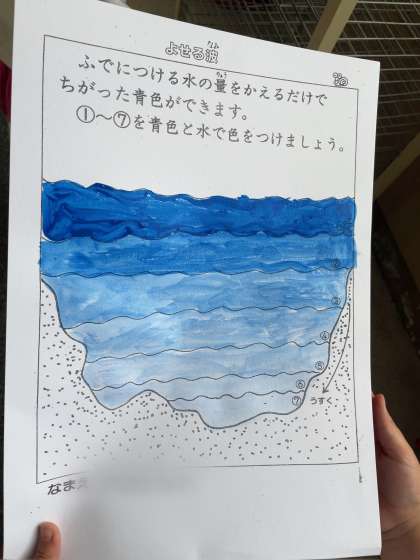 よせる波
ふでにつける水の量をかえるだけで
ちがった青色ができます。
①～⑦を青色と水で色をつけましょう。
②
③
④
⑤
⑥
⑦
うすく
なまえ